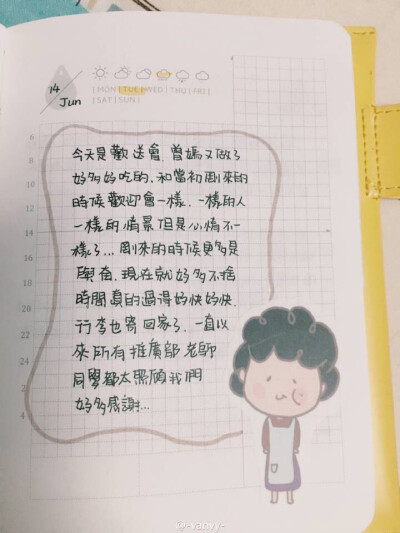 14
Jun
| MON | TUE | WED | THU | FRI |
| SAT | SUN |
6
8
10
12
14
16
18
20
22
24
2
4
今天是歡送會,曾媽又做了
好多好吃的,和當初剛來的
時候歡迎會一樣,一樣的人
一樣的情景但是心情不一
樣了...剛來的時候更多是
興奮,現在就好多不捨
時間真的過得好快好快
行李也寄回家了,一直以
來所有推廣部老師
同學都太照顧我們
好多感謝...
@-vanvy-